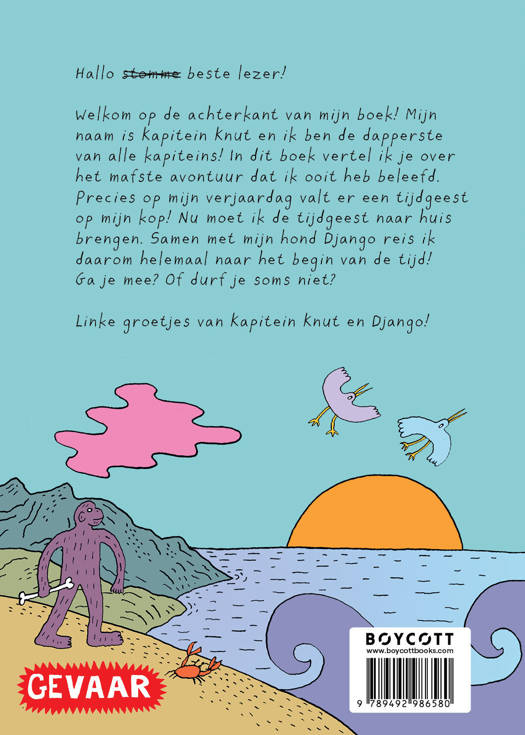 Hallo stomme beste lezer!
Welkom op de achterkant van mijn boek! Mijn
naam is Kapitein Knut en ik ben de dapperste
van alle kapiteins! In dit boek vertel ik je over
het mafste avontuur dat ik ooit heb beleefd.
Precies op mijn verjaardag valt er een tijdgeest
op mijn kop! Nu moet ik de tijdgeest naar huis
brengen. Samen met mijn hond Django reis ik
daarom helemaal naar het begin van de tijd!
Ga je mee? Of durf je soms niet?
Linke groetjes van Kapitein Knut en Django!
GEVAAR
BOYCOTT
www.boycottbooks.com
9 789492 986580